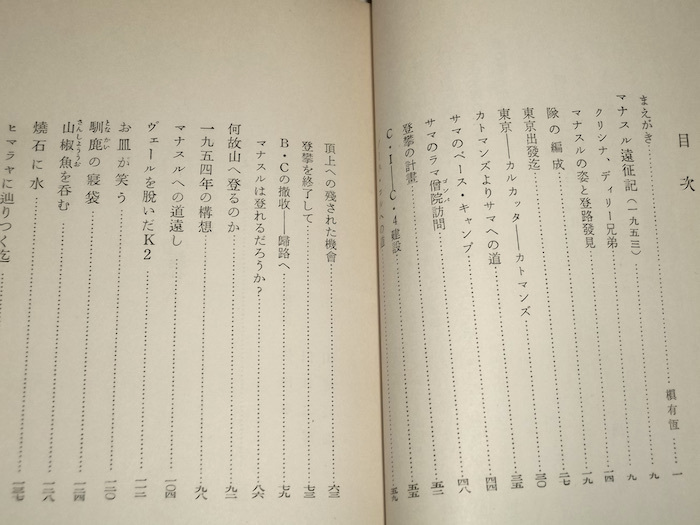 目次
まえがき 槇有恆 一
マナスル遠征記（一九五三） 九
クリシナ、ディリー兄弟 九
マナスルの姿と登路發見 一四
隊の編成 一九
東京出發迄 二七
東京――カルカッタ――カトマンズ 三〇
カトマンズよりサマへの道 三五
サマのベース・キャンプ 四四
サマのラマ僧院訪問 四八
登攀の計畫 五二
C・1―C・4建設 五五
五九
頂上への殘された機會 六三
登攀を終了して 七三
B・Cの撤收――歸路へ 七九
マナスルは登れるだろうか？ 八六
何故山へ登るのか 九二
一九五四年の構想 九八
マナスルへの道遠し 一〇四
ヴェールを脱いだK2 一一二
お皿が笑う 一二〇
馴鹿の寢袋 一二四
山椒魚を呑む 一二八
燒石に水
ヒマラヤに辿りつく迄